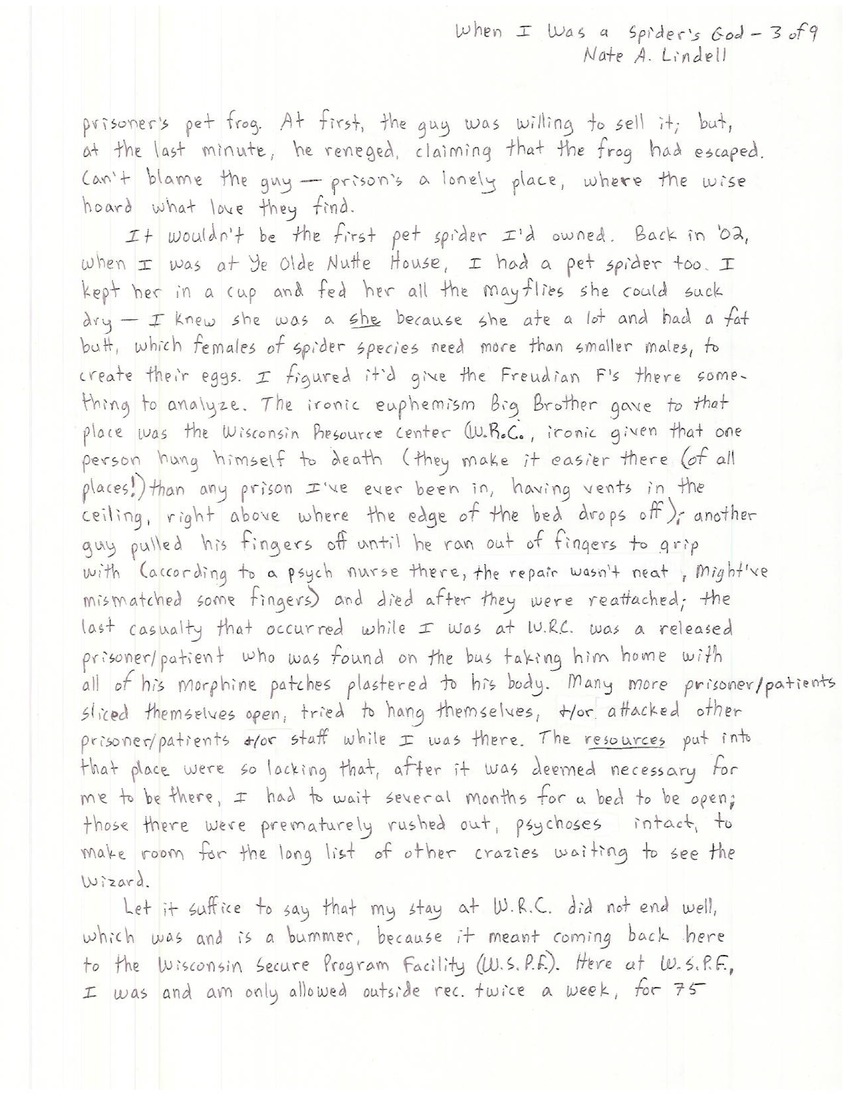 When I Was a Spider's God – 3 of 9
Nate A. Lindell
prisoner's pet frog. At first, the guy was willing to sell it; but,
at the last minute, he reneged, claiming that the frog had escaped.
Can't blame the guy — prison's a lonely place, where the wise
hoard what love they find.
It wouldn't be the first pet spider I'd owned. Back in '02,
when I was at Ye Olde Nutte House, I had a pet spider too. I
kept her in a cup and fed her all the mayflies she could suck
dry — I knew she was a she because she ate a lot and had a fat
butt, which females of spider species need more than smaller males, to
create their eggs. I figured it'd give the Freudian F's there some-
thing to analyze. The ironic euphemism Big Brother gave to that
place was the Wisconsin Resource Center (W.R.C., ironic given that one
person hung himself to death (they make it easier there (of all
places!) than any prison I've ever been in, having vents in the
ceiling, right above where the edge of the bed drops off); another
guy pulled his fingers off until he ran out of fingers to grip
with (according to a psych nurse there, the repair wasn't neat, might've
mismatched some fingers) and died after they were reattached; the
last casualty that occurred while I was at W.R.C. was a released
prisoner/patient who was found on the bus taking him home with
all of his morphine patches plastered to his body. Many more prisoner/patients
sliced themselves open, tried to hang themselves, +/or attacked other
prisoner/patients +/or staff while I was there. The resources put into
that place were so lacking that, after it was deemed necessary for
me to be there, I had to wait several months for a bed to be open;
those there were prematurely rushed out, psychoses intact, to
make room for the long list of other crazies waiting to see the
Wizard.
Let it suffice to say that my stay at W.R.C. did not end well,
which was and is a bummer, because it meant coming back here
to the Wisconsin Secure Program Facility (W.S.P.F.). Here at W.S.P.F.,
I was and am only allowed outside rec. twice a week, for 75